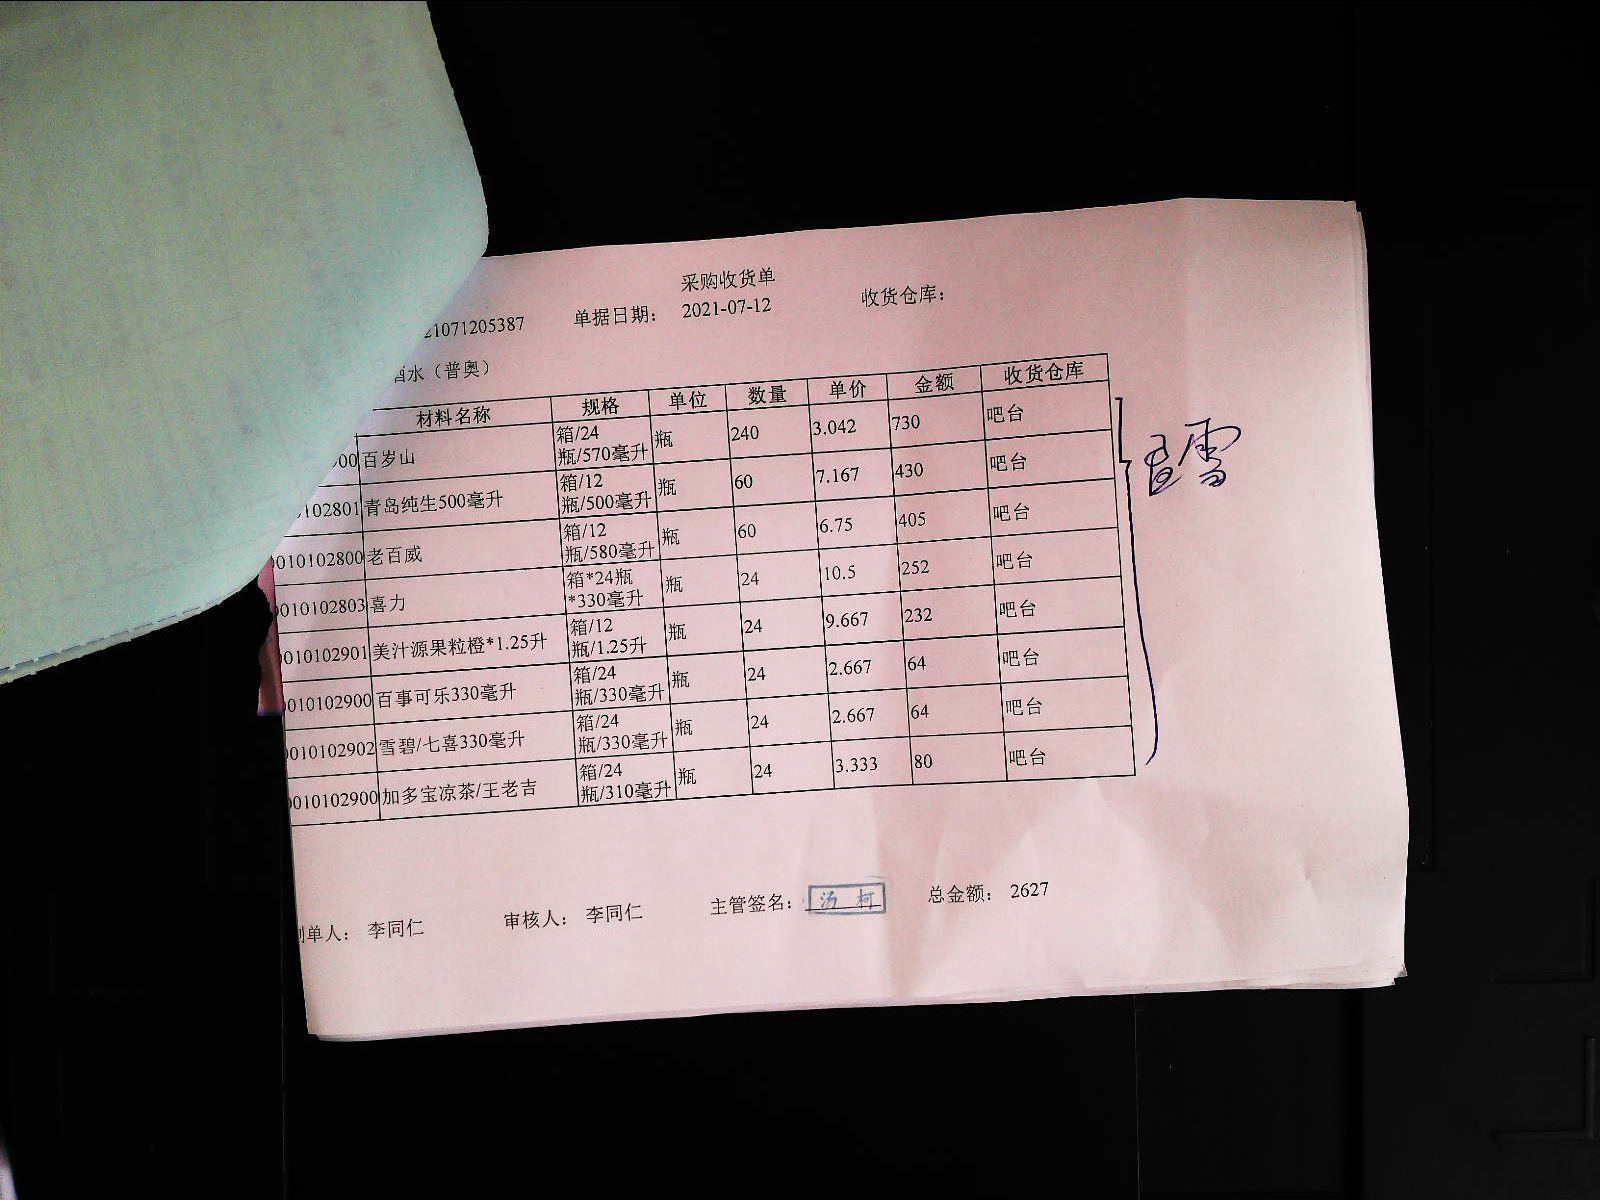 采购收货单
21071205387 单据日期： 2021-07-12 收货仓库：
酒水（普奥）
材料名称 规格 单位 数量 单价 金额 收货仓库
00 百岁山 箱/24瓶/570毫升 瓶 240 3.042 730 吧台
0102801 青岛纯生500毫升 箱/12瓶/500毫升 瓶 60 7.167 430 吧台
010102800 老百威 箱/12瓶/580毫升 瓶 60 6.75 405 吧台
0010102803 喜力 箱*24瓶*330毫升 瓶 24 10.5 252 吧台
0010102901 美汁源果粒橙*1.25升 箱/12瓶/1.25升 瓶 24 9.667 232 吧台
0010102900 百事可乐330毫升 箱/24瓶/330毫升 瓶 24 2.667 64 吧台
0010102902 雪碧/七喜330毫升 箱/24瓶/330毫升 瓶 24 2.667 64 吧台
0010102900 加多宝凉茶/王老吉 箱/24瓶/310毫升 瓶 24 3.333 80 吧台
制单人： 李同仁 审核人： 李同仁 主管签名： 汤柯 总金额： 2627